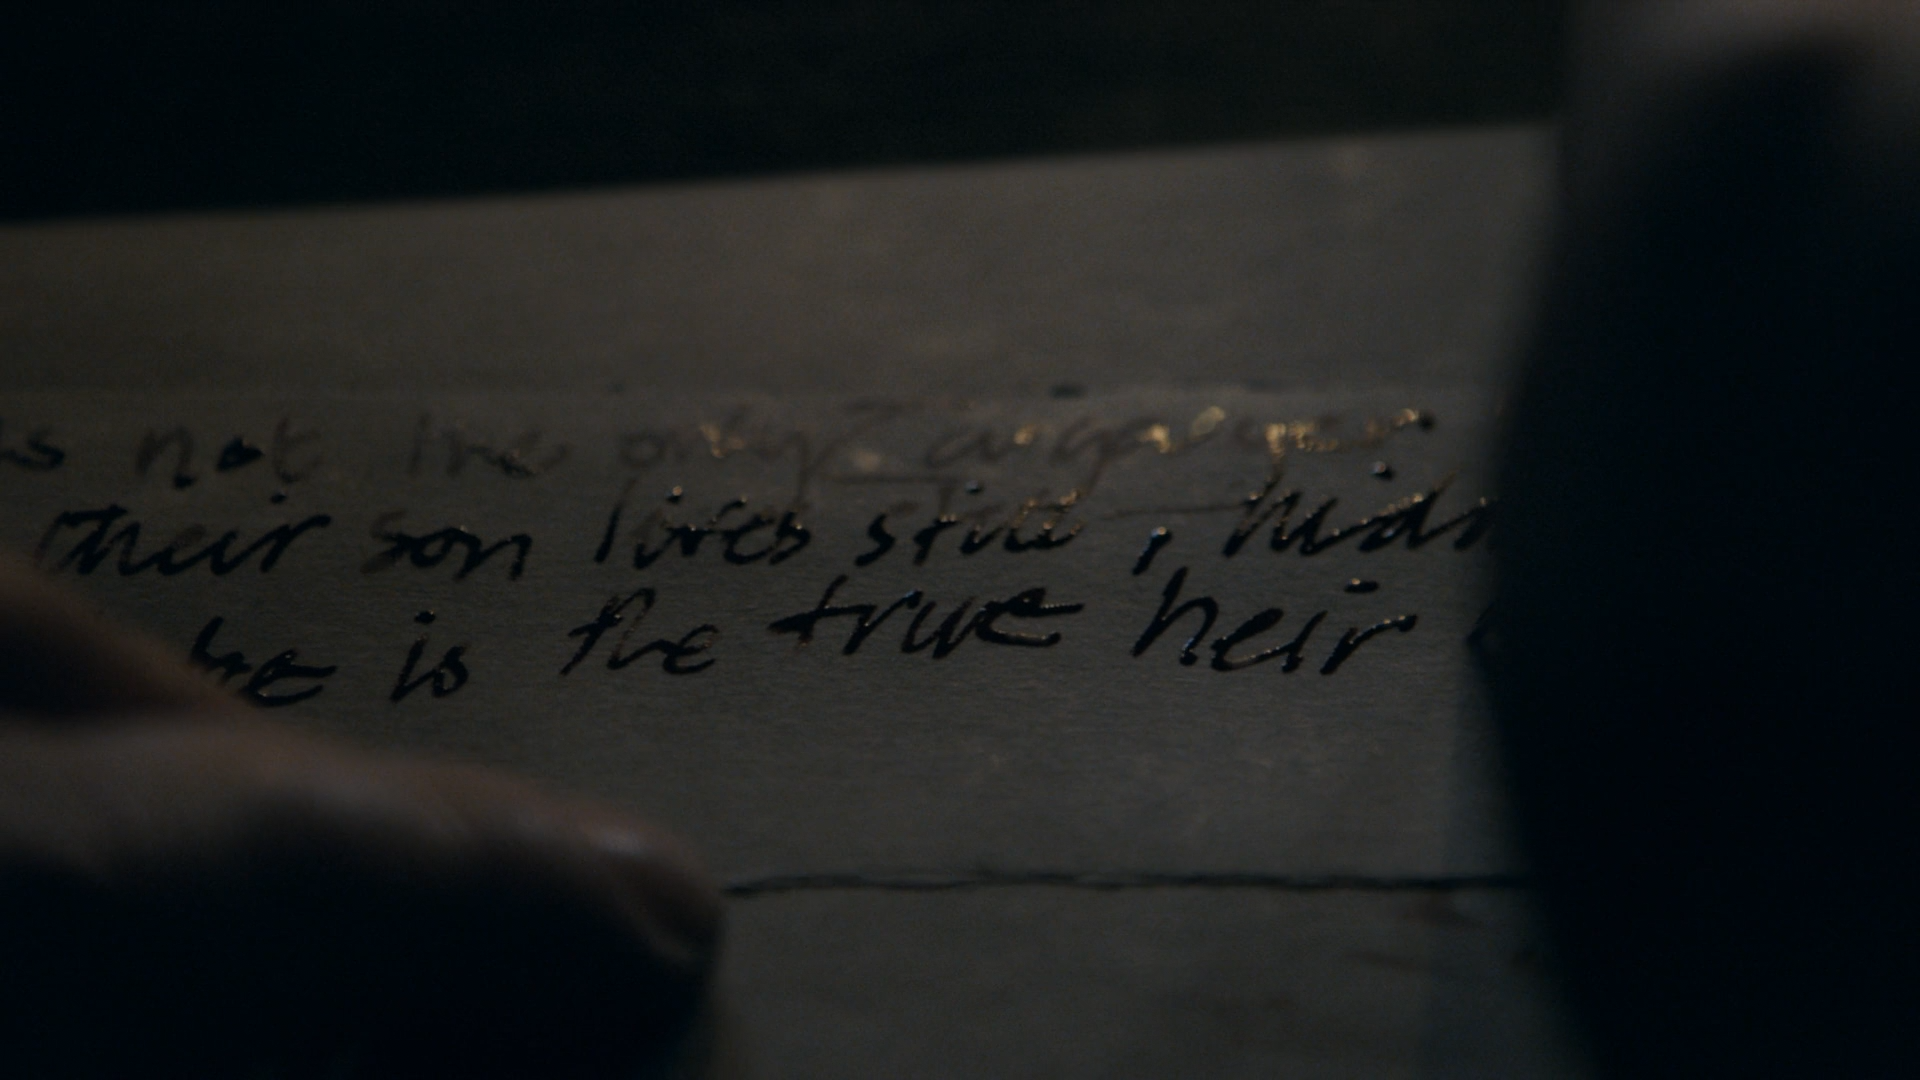 is not the only Targaryen
their son lives still, hidd
he is the true heir